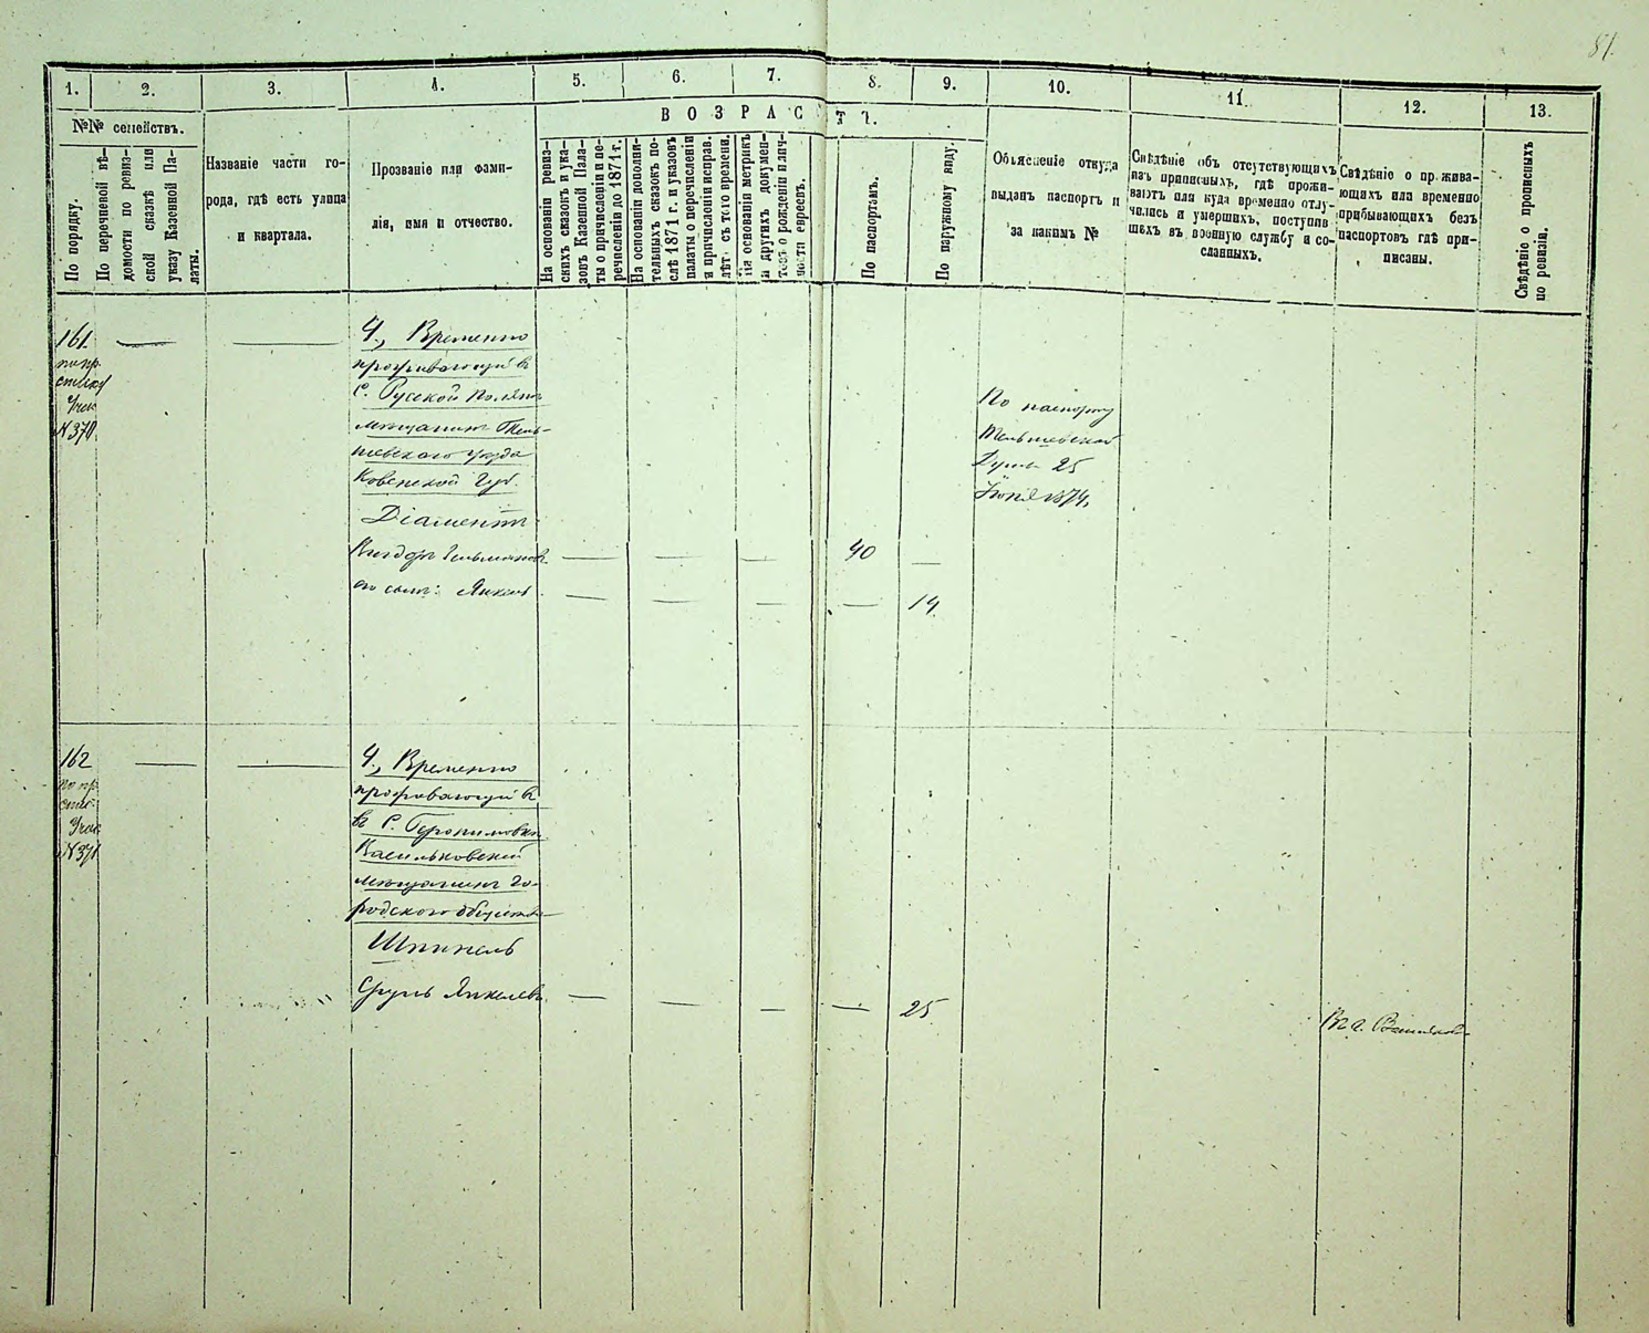 81.
1. 2. 3. 4. 5. 6. 7. 8. 9. 10. 11. 12. 13.
№№ семействъ.
По порядку.
По перечневой вѣ-
домости по ревиз-
ской сказкѣ или
указу Казенной Па-
латы.
Названіе части го-
рода, гдѣ есть улица
и квартала.
Прозваніе или фами-
лія, имя и отчество.
ВОЗРАСТЪ.
На основаніи ревиз-
скихъ сказокъ и ука-
зовъ Казенной Пала-
ты о причисленіи и пе-
речисленіи до 1871 г.
На основаніи дополни-
тельныхъ сказокъ по-
слѣ 1871 г. и указовъ
палаты о перечисленіи
и причисленіи исправ.
лѣтъ съ того времени.
На основаніи метрикъ
и другихъ докумен-
товъ о рожденіи и лич-
ности евреевъ.
По паспортамъ.
По наружному виду.
Объясненіе откуда
выданъ паспортъ и
за какимъ №
Свѣдѣніе объ отсутствующихъ
изъ приписныхъ, гдѣ прожи-
ваютъ или куда временно отлу-
чились и умершихъ, поступив
шихъ въ военную службу и со-
сланныхъ.
Свѣдѣніе о прожива-
ющихъ или временно
прибывающихъ безъ
паспортовъ гдѣ при-
писаны.
Свѣдѣніе о прописныхъ
по ревизіи.
161.
по пр.
списку
№370
Ч., Временно
проживающій въ
С. Русской Поляны
мѣщанинъ Тель-
шевскаго уѣзда
Ковенской Губ.
Діаментъ
его сынъ: Янкель
По паспорту
Тельшевской
Думы 25
1874.
40
14.
162
по пр.
спис.
№371
Ч., Временно
проживающій въ
въ С. Геронимовкѣ
Васильковскій
мѣщанинъ го-
родского общества
Шпинель
Сруль Янкелевъ
25
Въ г. Васильковѣ